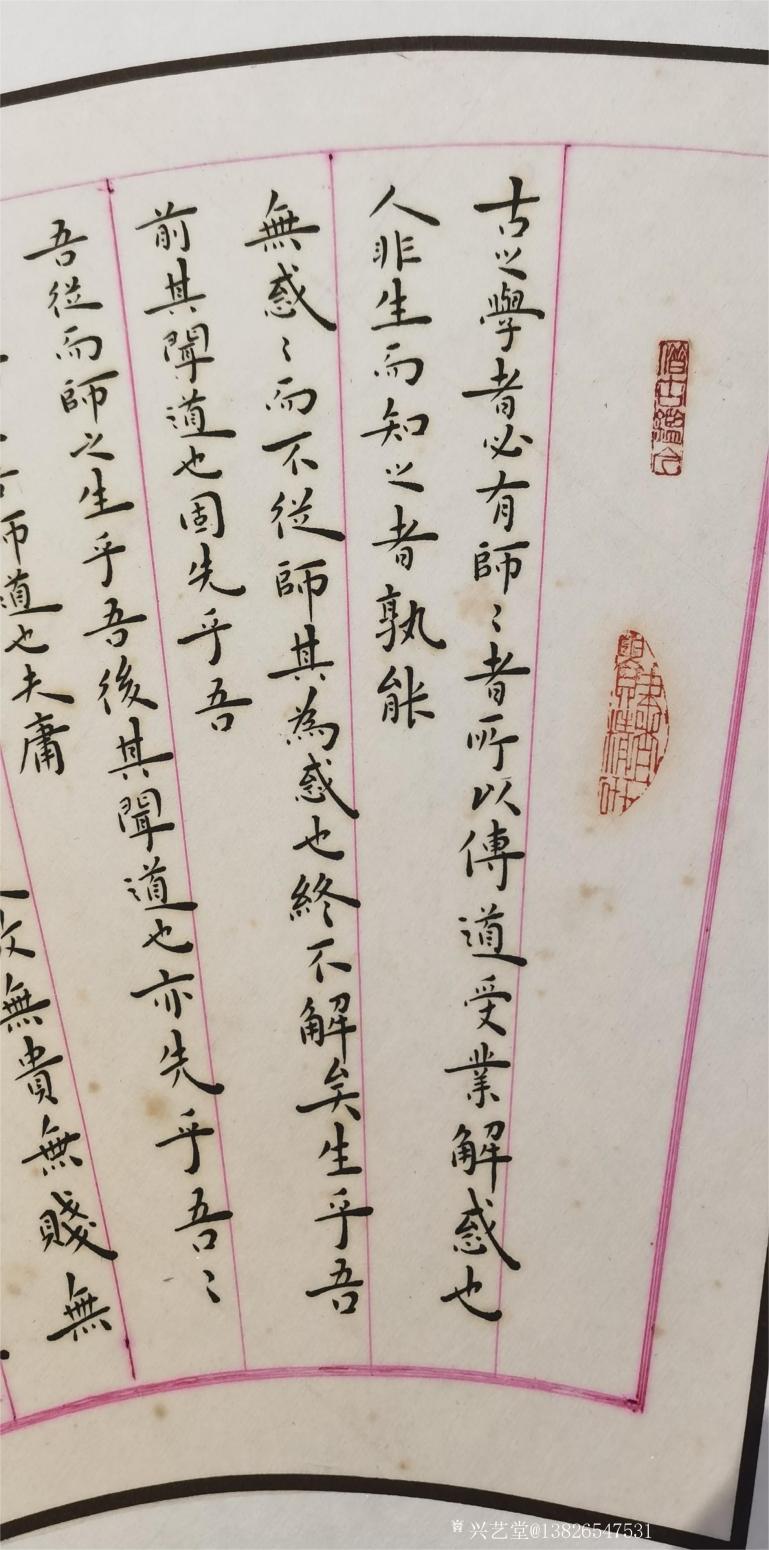 借古鑑今
古之學者必有師〻者所以傳道受業解惑也
人非生而知之者孰能
無惑〻而不從師其為惑也終不解矣生乎吾
前其聞道也固先乎吾
吾從而師之生乎吾後其聞道也亦先乎吾〻
師道也夫庸
無貴無賤無
兴艺堂@13826547531